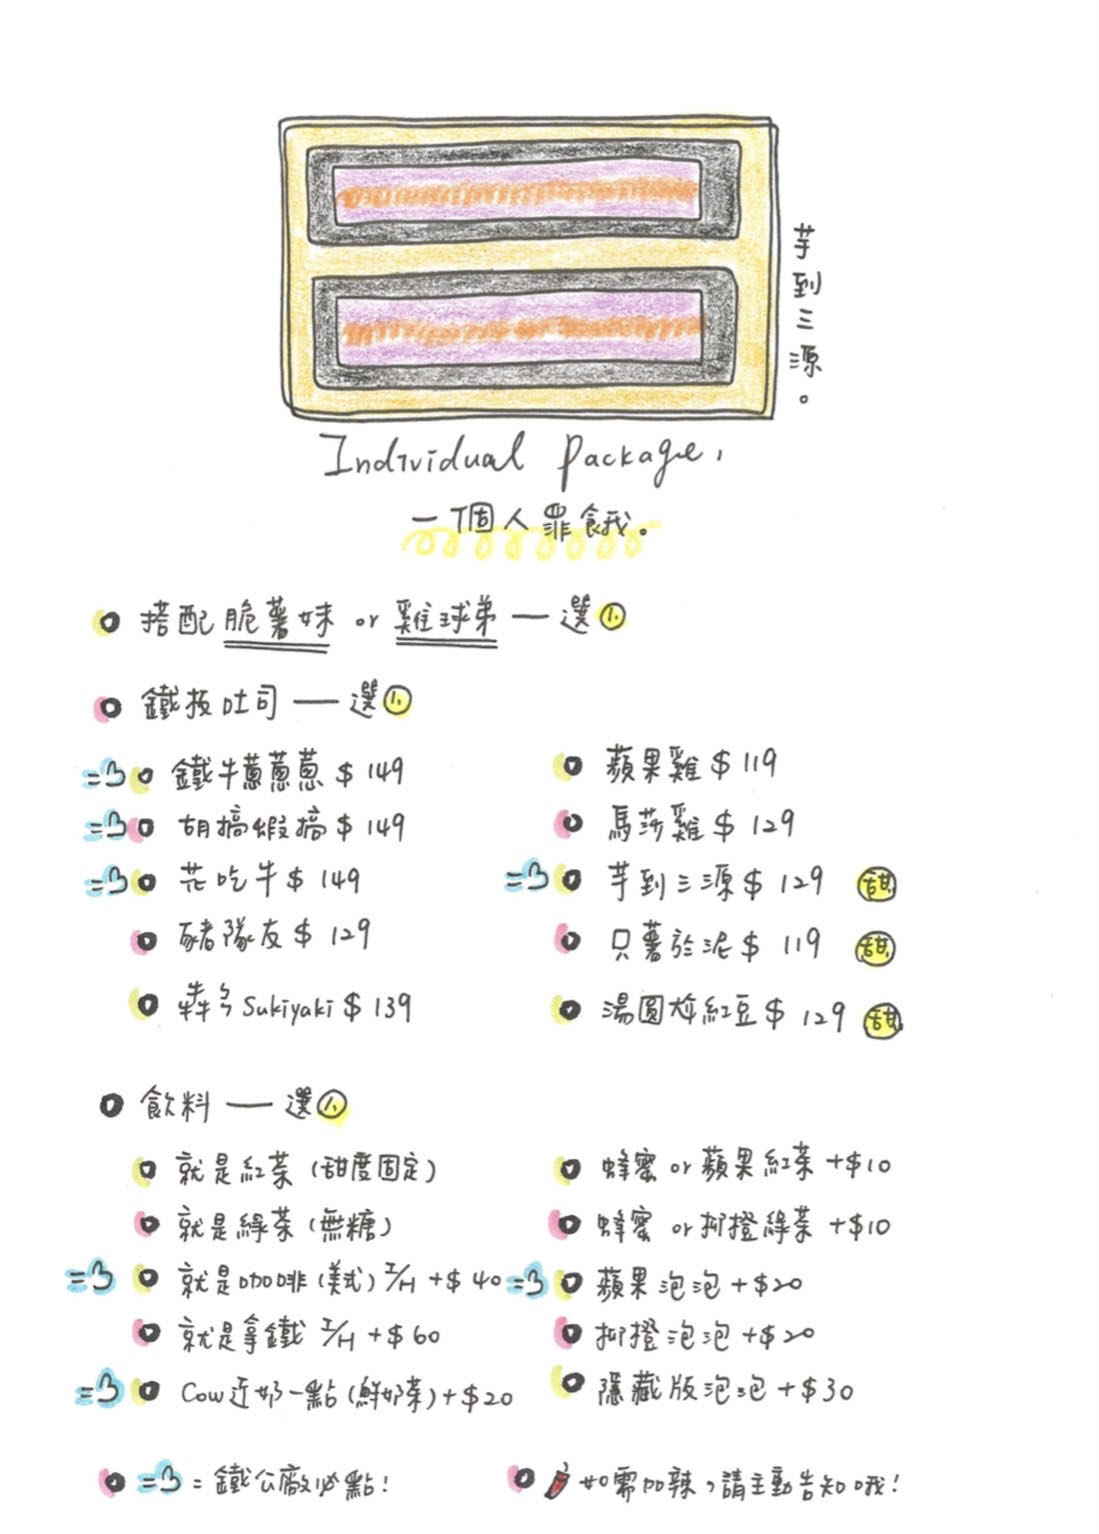 芋到三源。
Individual Package,
一個人罪餓。
搭配脆薯妹 or 雞球弟 一 選 1.
鐵板吐司 一 選 1.
鐵牛蔥蔥蔥 $ 149
胡搞蝦搞 $ 149
花吃牛 $ 149
豬隊友 $ 129
犇ㄢ Sukiyaki $ 139
蘋果雞 $ 119
馬莎雞 $ 129
芋到三源 $ 129 甜
只薯於泥 $ 119 甜
湯圓尬紅豆 $ 129 甜
飲料 一 選 1.
就是紅茶 (甜度固定)
就是綠茶 (無糖)
就是咖啡 (美式) I/H +$ 40
就是拿鐵 I/H +$ 60
Cow近奶一點 (鮮奶茶) +$20
蜂蜜 or 蘋果紅茶 +$10
蜂蜜 or 柳橙綠茶 +$10
蘋果泡泡 +$20
柳橙泡泡 +$20
隱藏版泡泡 +$30
= 鐵公廠必點!
如需加辣,請主動告知哦!